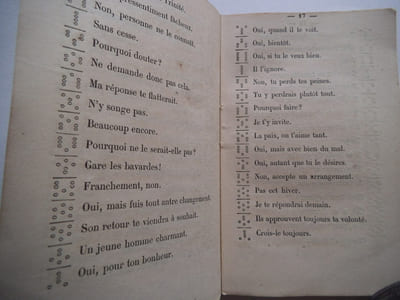 Trinité.
pressentiment fâcheur.
Non, personne ne le connaît.
Sans cesse.
Pourquoi douter?
Ne demande donc pas cela.
Ma réponse te flatterait.
N'y songe pas.
Beaucoup encore.
Pourquoi ne le serait-elle pas?
Gare les bavardes!
Franchement, non.
Oui, mais fuis tout autre changement.
Son retour te viendra à souhait.
Un jeune homme charmant.
Oui, pour ton bonheur.
— 17 —
Oui, quand il te voit.
Oui, bientôt.
Oui, si tu le veux bien.
Il l'ignore.
Non, tu perds tes peines.
Tu y perdrais plutôt tout.
Pourquoi faire?
Je t'y invite.
La paix, on t'aime tant.
Oui, mais avec bien du mal.
Oui, autant que tu le désires.
Non, accepte un arrangement.
Pas cet hiver.
Je te répondrai demain.
Ils approuvent toujours ta volonté.
Crois-le toujours.